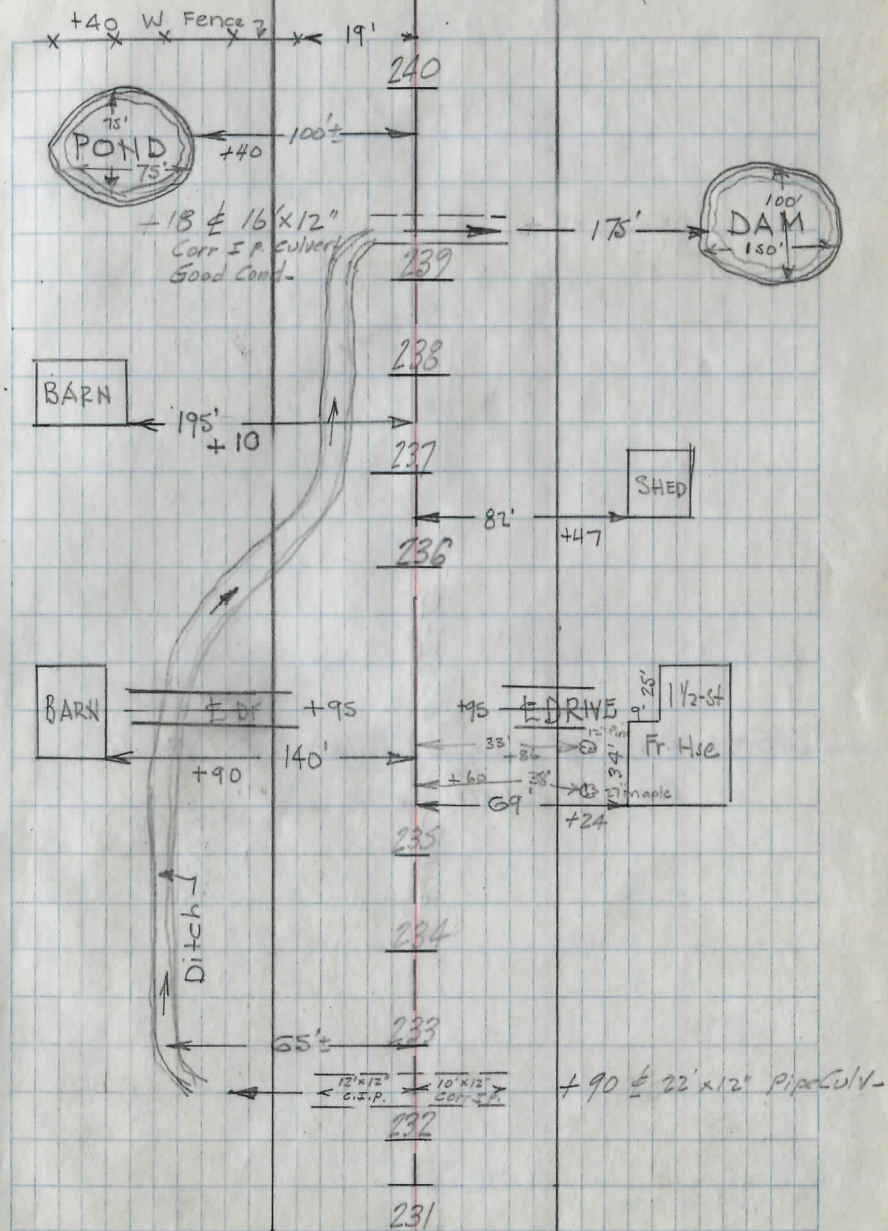 +40 W Fence
19'
240
75'
POND
75'
100'±
+40
+18 ⅊ 16'x12"
Corr I.P. Culvert
Good Cond.
175'
100'
DAM
150'
239
238
BARN
195'
+10
237
SHED
82'
+47
236
BARN
+95
+95
℄ DRIVE
9'
25'
1½-St
Fr. Hse
34'
33'
+86
+90
140'
+60
38'
27" maple
69'
+24
235
Ditch
234
233
65'±
12'x12"
C.I.P.
10'x12"
Corr I.P.
+90 ℄ 22'x12" Pipe Culv-
232
231